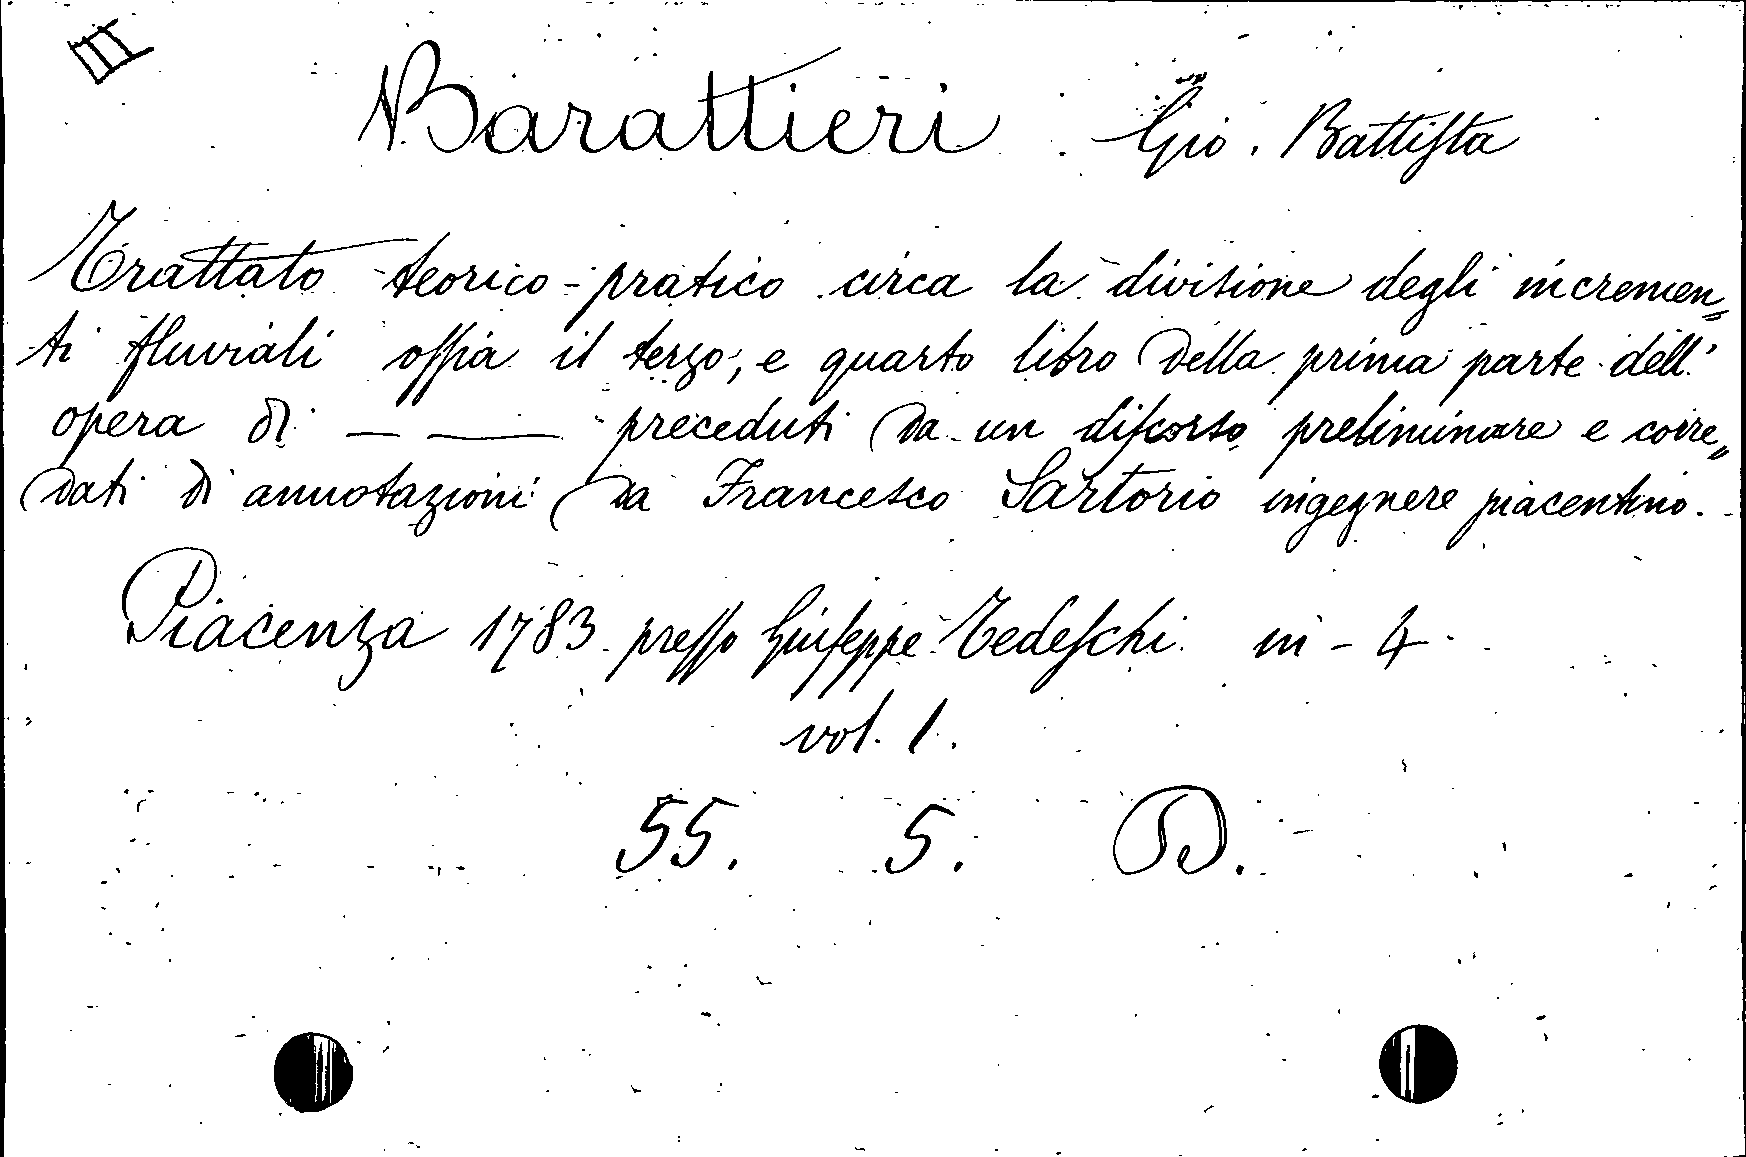 III
Barattieri Gio. Battiſta
Trattato teorico-pratico circa la divisione degli incremen„
ti fluviali oſſia il terzo, e quarto libro della prima parte dell'
opera di — — preceduti da un diſcorso preliminare e corre„
dati di annotazioni da Francesco Sartorio ingegnere piacentino.
Piacenza 1783 preſſo Giuſeppe Tedeſchi in-4.
vol. 1.
55. 5. D.